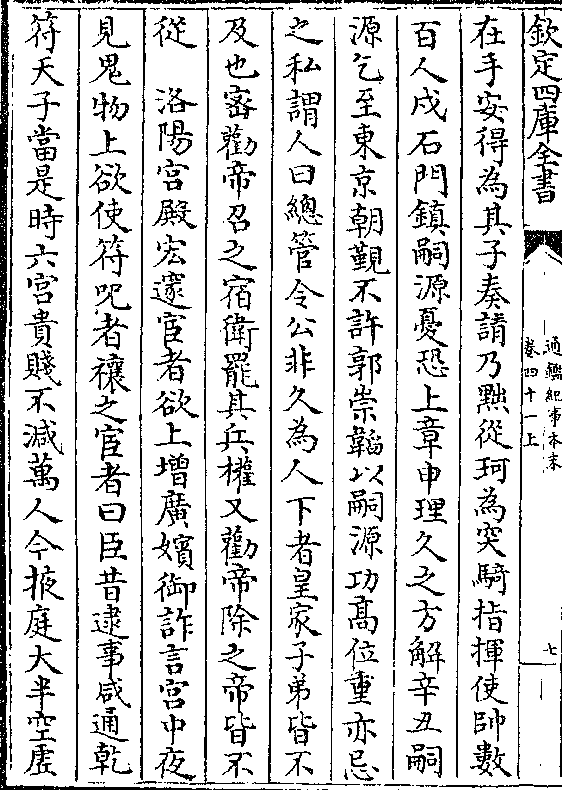 欽定四庫全書
通鑑紀事本末
卷四十一上
七
在手安得為其子奏請乃黜從珂為突騎指揮使帥數
百人戍石門鎮嗣源憂恐上章申理久之方解辛丑嗣
源乞至東京朝覲不許郭崇韜以嗣源功高位重亦忌
之私謂人曰總管令公非久為人下者皇家子弟皆不
及也宻勸帝召之宿衛罷其兵權又勸帝除之帝皆不
從　洛陽宫殿宏邃宦者欲上增廣嬪御詐言宫中夜
見鬼物上欲使符呪者禳之宦者曰臣昔逮事咸通乾
符天子當是時六宫貴賤不減萬人今掖庭大半空虚